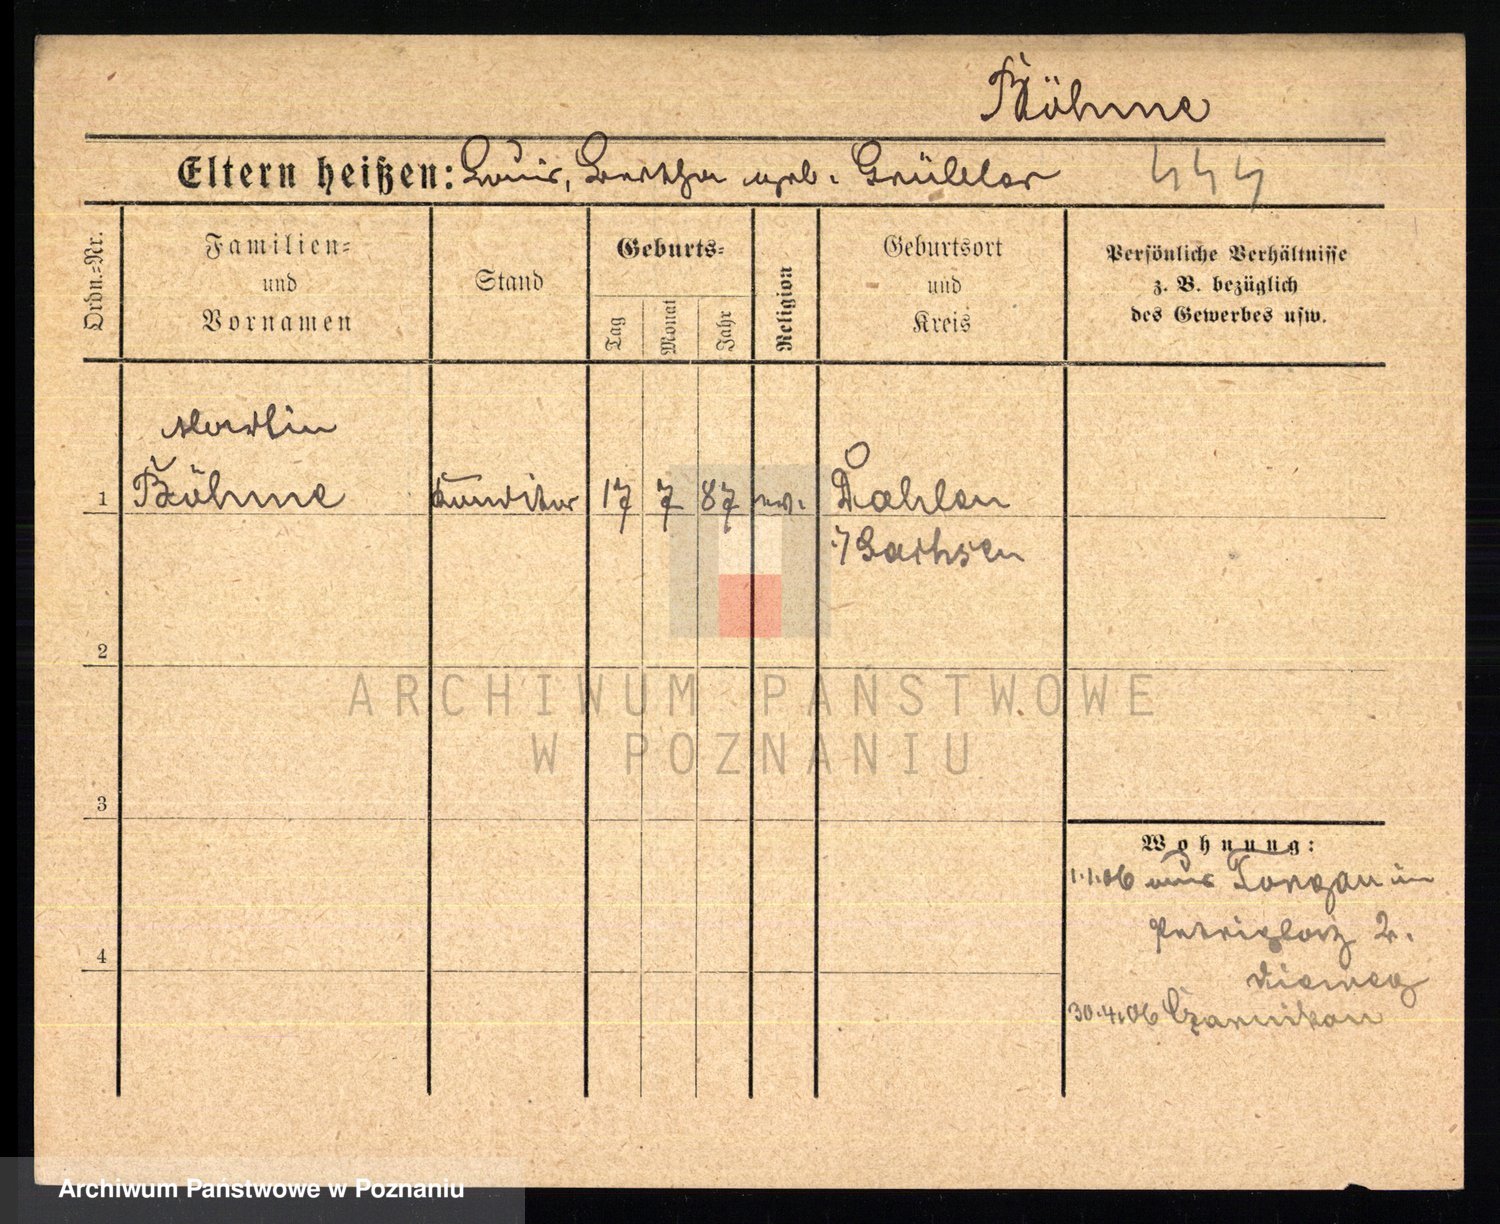 Böhme
Eltern heißen: Louis, Bertha geb.
Ordn.-Nr.
Familien-
und
Vornamen
Stand
Geburts-
Tag
Monat
Jahr
Religion
Geburtsort
und
Kreis
Persönliche Verhältnisse
z. B. bezüglich
des Gewerbes usw.
Martin
1 Böhme Konditor 17 7 87 ev. Dahlen
i/Sachsen
2
ARCHIWUM PAŃSTWOWE
W POZNANIU
3
Wohnung:
1.1.06 aus Torgau in
Petriplatz 2.
4
30.4.06 Czarnikau
Archiwum Państwowe w Poznaniu